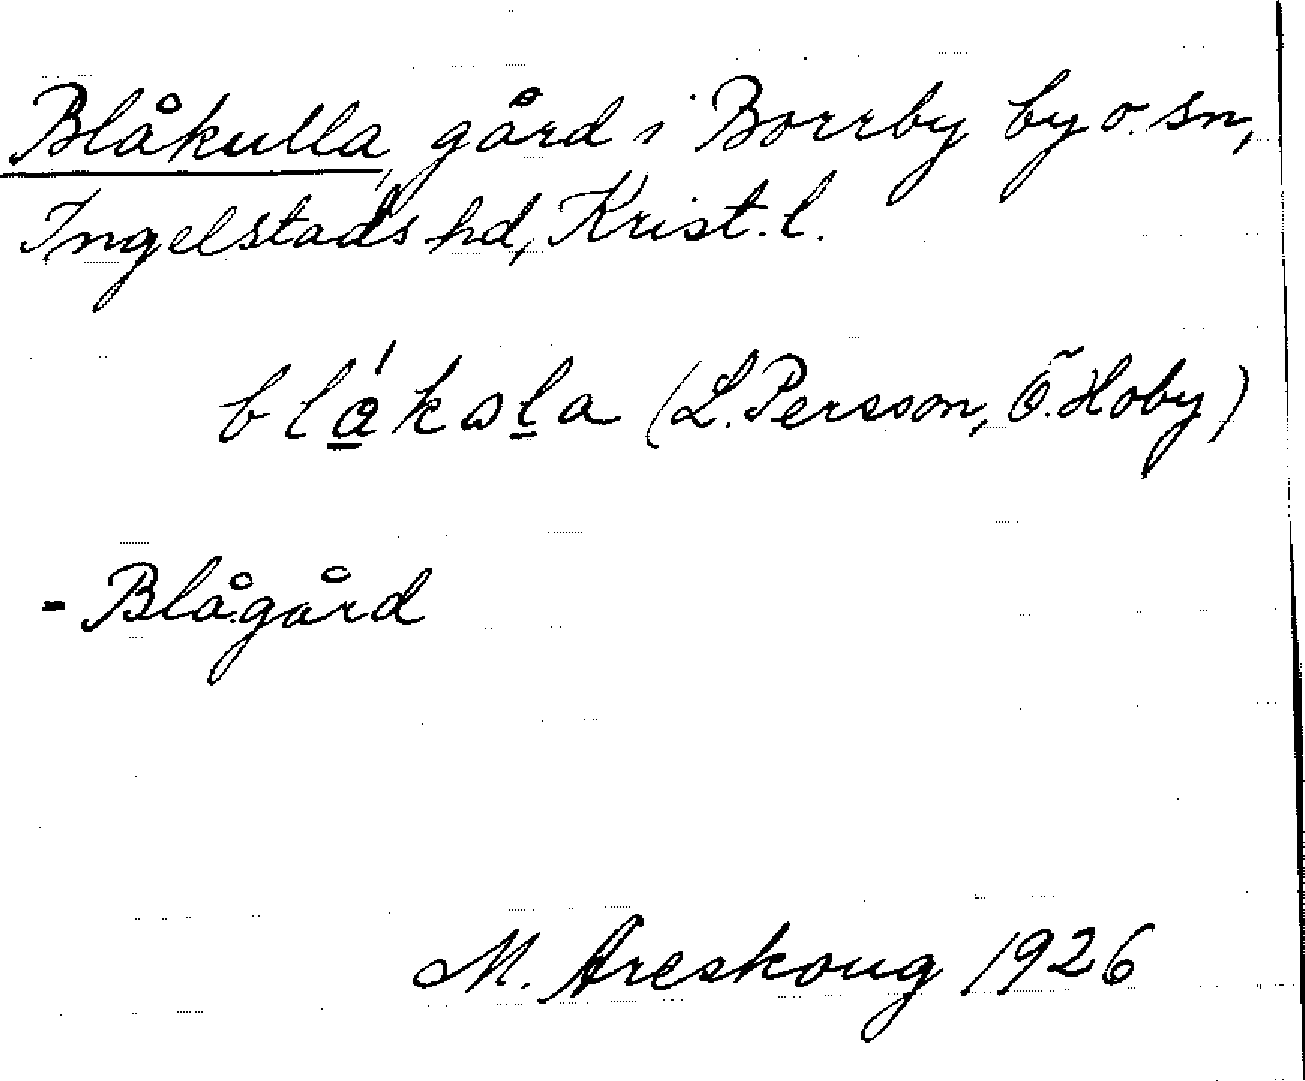 Blåkulla, gård i Borrby by o. sn,
Ingelstads hd, Krist. l.
(L. Persson, Ö. Hoby)
- Blågård
M. Areskoug 1926